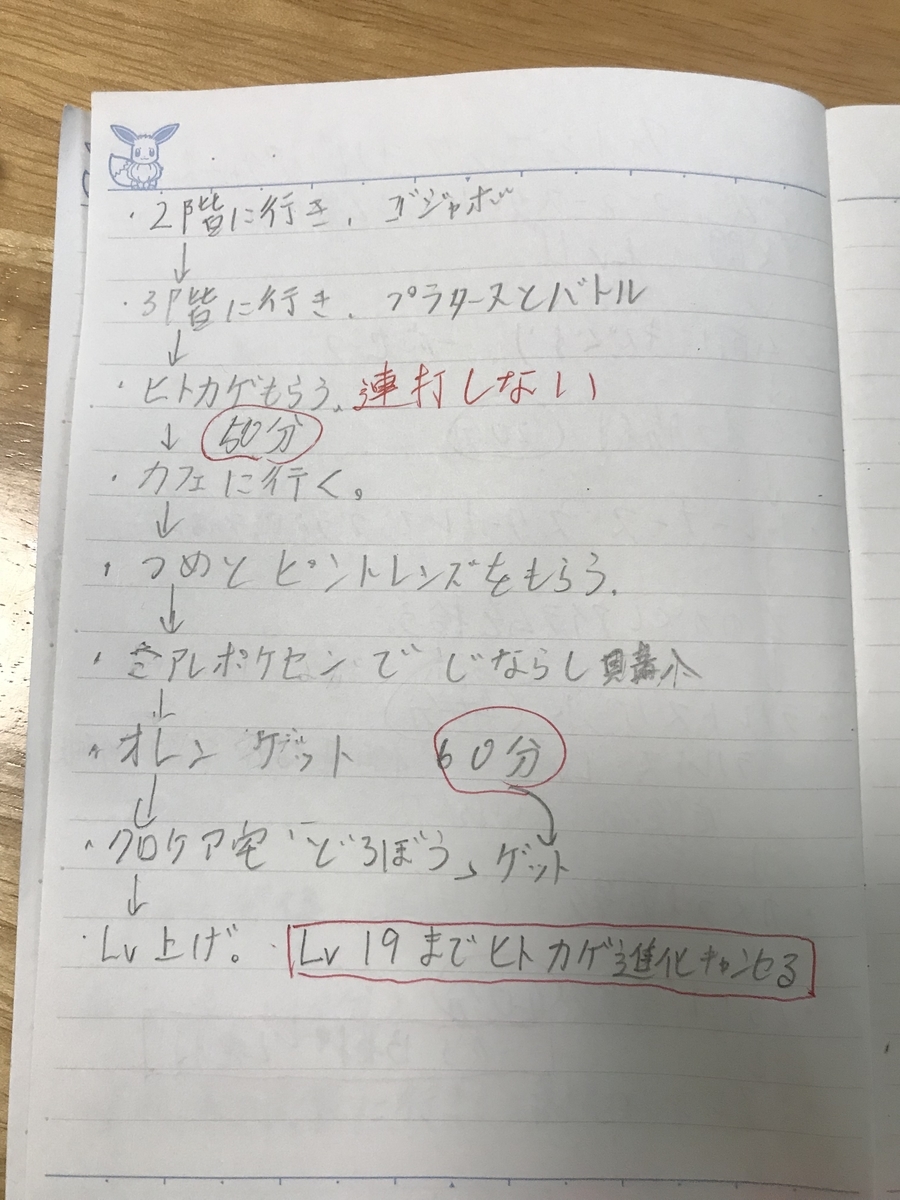 ・2階に行き、ゴジャボ
↓
・3階に行き、プラターヌとバトル
↓
・ヒトカゲもらう、連打しない
↓ 50分
・カフェに行く。
↓
・つめとピントレンズをもらう。
↓
・ミアレポケセンで じならし購入
↓
・オレン ゲット 60分
↓
・クロケア宅「どろぼう」ゲット
↓
・Lv上げ。・Lv 19 までヒトカゲ進化キャンセる